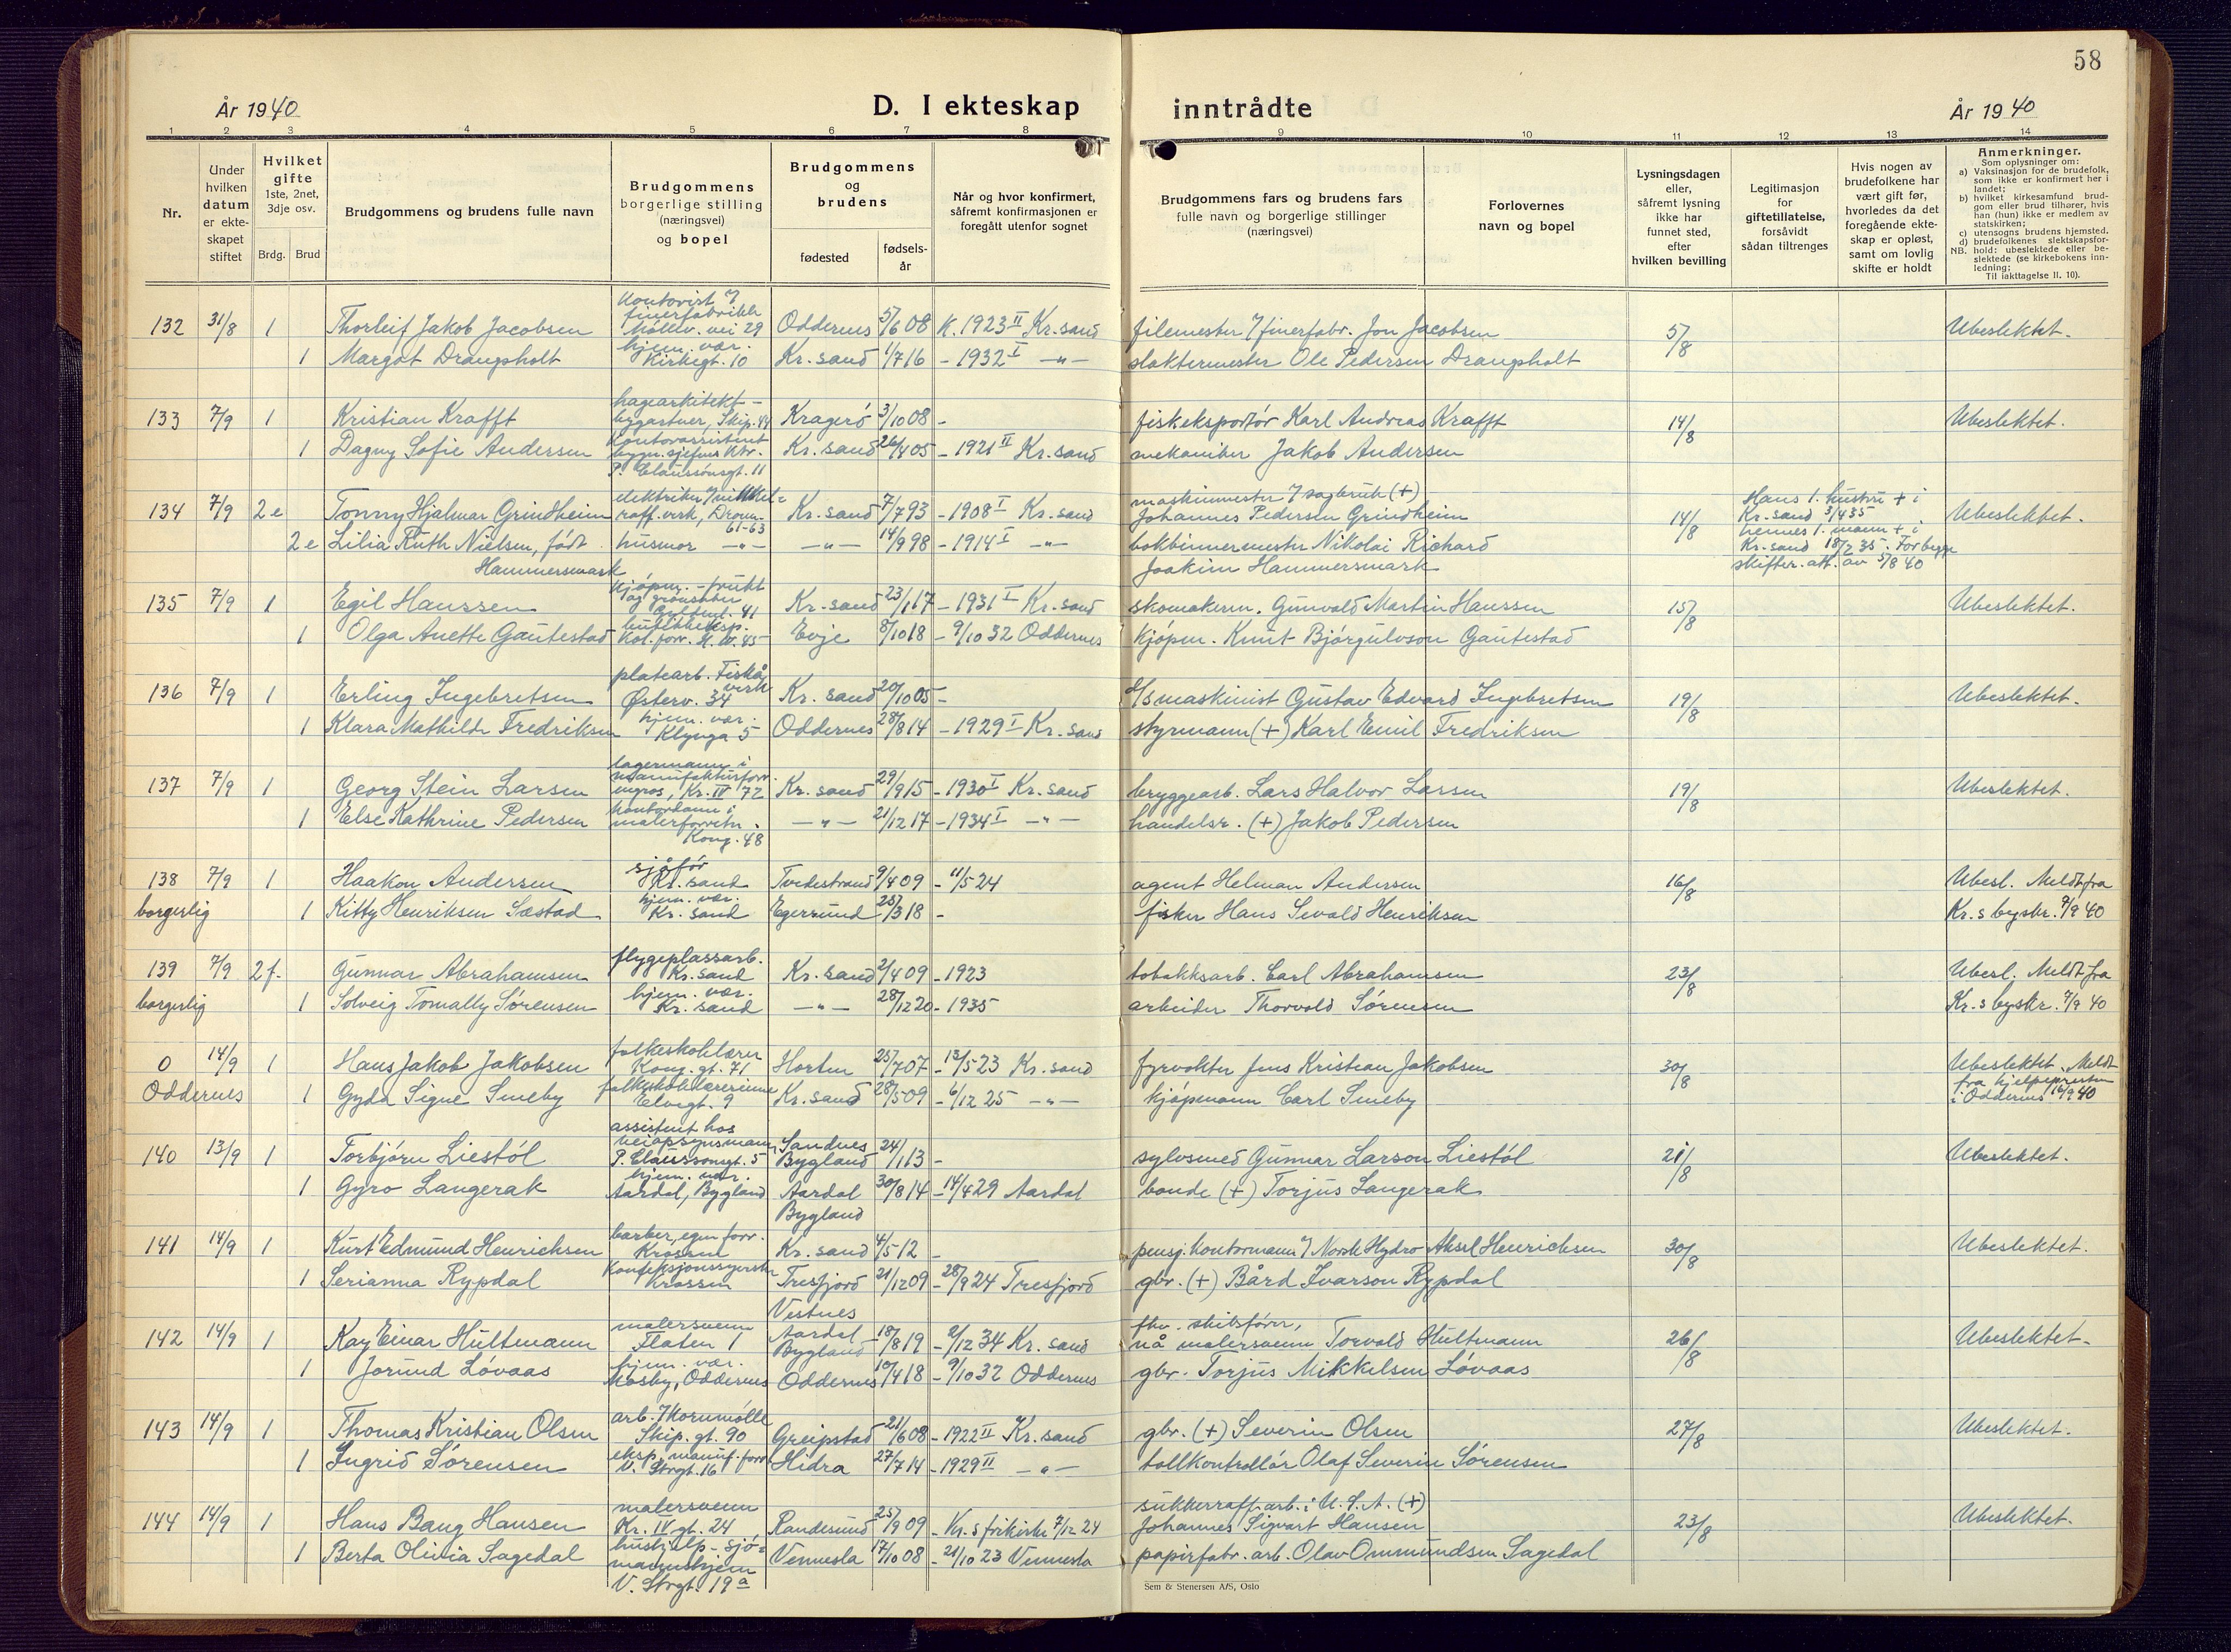 58
År 1940
D. I ekteskap
inntrådte
År 1940
1 2 3 4 5 6 7 8 9 10 11 12 13 14
Nr.
Under hvilken datum er ekte- skapet stiftet
Hvilket gifte 1ste, 2net, 3dje osv.
Brdg. Brud
Brudgommens og brudens fulle navn
Brudgommens borgerlige stilling (næringsvei) og bopel
Brudgommens og brudens
fødested
fødsels- år
Når og hvor konfirmert, såfremt konfirmasjonen er foregått utenfor sognet
Brudgommens fars og brudens fars fulle navn og borgerlige stillinger (næringsvei)
Forlovernes navn og bopel
Lysningsdagen eller, såfremt lysning ikke har funnet sted, efter hvilken bevilling
Legitimasjon for giftetillatelse, forsåvidt sådan tiltrenges
Hvis nogen av brudefolkene har vært gift før, hvorledes da det foregående ekte- skap er opløst, samt om lovlig skifte er holdt
Anmerkninger.
Som oplysninger om:
a) Vaksinasjon for de brudefolk, som ikke er konfirmert her i landet;
b) hvilket kirkesamfund brud- gom eller brud tilhører, hvis han (hun) ikke er medlem av statskirken;
c) utensogns brudens hjemsted.
d) brudefolkenes slektskapsfor- hold: ubeslektede eller be- slektede (se kirkebokens inn- ledning;
NB. Til iakttagelse II. 10).
132 31/8 1 Thorleif Jakob Jacobsen kontorist finerfabrikk vei 29 Oddernes 5/6 08 K. 1923 II Kr.sand filemester finerfabr. Jon Jacobsen 5/8 Ubeslektet.
1 Margot Drangsholt hjem. vær. Kirkegt. 10 Kr. sand 1/7 16 - 1932 I -"- slaktermester Ole Pedersen Drangsholt
133 7/9 1 Kristian Krafft hagearkitekt - Skip. 44 Kragerö 3/10 08 - fiskeksportör Karl Andreas Krafft 14/8 Ubeslektet.
1 Dagny Sofie Andersen kontorassistent P. Claussönsgt. 11 Kr. sand 26/4 05 - 1921 II Kr. sand mekaniker Jakob Andersen
134 7/9 2 e Tonny Hjalmar Grindheim elektriker raff. verk, Dronn. 61-63 Kr. sand 7/7 93 - 1908 I Kr. sand maskinmester sagbruk (+) Johannes Pedersen Grindheim 14/8 Hans 1. hustru + i Kr. sand 3/4 35 Ubeslektet.
2 e Lilia Ruth Nielsen, födt Hammersmark husmor -"- -"- 14/9 98 - 1914 I -"- bokbinnermester Nikolai Richard Joakim Hammersmark hennes 1. mann + i Kr. sand 18/2 35. For begge skifter. att. av 5/8 40
135 7/9 1 Egil Hanssen Kjöpm. - frukt og grönsaker 41 Kr. sand 23/1 17 - 1931 I Kr. sand skomakerm. Gunvald Martin Hanssen 15/8 Ubeslektet.
1 Olga Anette Gautestad Kol. forr. 45 Evje 8/10 18 - 9/10 32 Oddernes kjöpm. Knut Björgulvson Gautestad
136 7/9 1 Erling Ingebretsen platearb. Fiskå verk Österv. 34 Kr. sand 20/10 05 - maskinist Gustav Edvard Ingebretsen 19/8 Ubeslektet.
1 Klara Mathilde Fredriksen hjem. vær. Klynga 5 Oddernes 28/8 14 - 1929 I Kr. sand styrmann (+) Karl Emil Fredriksen
137 7/9 1 Georg Stein Larsen lagermann i manufakturforr. engros, Kr. IV 72 Kr. sand 29/9 15 - 1930 I Kr. sand bryggearb. Lars Halvor Larsen 19/8 Ubeslektet.
1 Else Kathrine Pedersen kontordame i malerforretn. Kong. 48 -"- 21/12 17 - 1934 I -"- handelsr. (+) Jakob Pedersen
138 7/9 1 Haakon Andersen sjåför Kr. sand Tvedestrand 9/4 09 - 11/5 24 agent Helman Andersen 16/8 Ubesl. Meldt fra
borgerlig 1 Kitty Henriksen Sæstad hjem. vær. Kr. sand Egersund 25/3 18 - fisker Hans Sevald Henriksen Kr. s byskr. 9/9 40
139 7/9 2 f. Gunnar Abrahamsen flygeplassarb. Kr. sand Kr. sand 2/4 09 - 1923 tobakksarb. Carl Abrahamsen 23/8 Ubesl. Meldt fra
borgerlig 1 Solveig Tomally Sörensen hjem. vær. Kr. sand -"- 28/12 20 - 1935 arbeider Thorvald Sörensen Kr. s byskr. 7/9 40
0 14/9 1 Hans Jakob Jakobsen folkeskolelærer Kong. gt. 71 Horten 25/7 07 - 13/5 23 Kr. sand fyrvokter Jens Kristian Jakobsen 30/8 Ubeslektet. Meldt
Oddernes 1 Gyda Signe Smeby folkeskolelærerinne Elvegt. 9 Kr. sand 28/5 09 - 6/12 25 -"- kjöpmann Carl Smeby fra hjelpepresten i Oddernes 16/9 40
140 13/9 1 Torbjörn Liestöl assistent hos veiopsynsmann P. Claussonsgt. 5 Sandnes Bygland 24/1 13 - sylvsmed Gunnar Larson Liestöl 21/8 Ubeslektet.
1 Gyro Langerak hjem. vær. Aardal, Bygland Aardal Bygland 30/8 14 - 14/4 29 Aardal bonde (+) Torjus Langerak
141 14/9 1 Kurt Edmund Henrichsen barber, egen forr. Krossen Kr. sand 4/5 12 - pensj. kontormann Norsk Hydro Aksel Henrichsen 30/8 Ubeslektet.
1 Serianna Rypdal Konfeksjonssyerske Krossen Tresfjord Vestnes 21/12 09 - 28/9 24 Tresfjord gbr. (+) Bård Ivarson Rypdal
142 14/9 1 Kay Einar Hultmann malersvenn Flaten 1 Aardal Bygland 18/8 19 - 2/12 34 Kr. sand fhv. skibsförer, nå malersvenn Torvald Hultmann 26/8 Ubeslektet.
1 Jorund Lövaas hjem. vær. Mosby, Oddernes Oddernes 10/4 18 - 9/10 32 Oddernes gbr. Torjus Mikkelsen Lövaas
143 14/9 1 Thomas Kristian Olsen arb. Kornmölle Skip. gt. 90 Greipstad 21/6 08 - 1922 II Kr. sand gbr. (+) Severin Olsen 27/8 Ubeslektet.
1 Ingrid Sörensen eksp. manuf. forr. V. Strgt. 16 Hidra 27/7 14 - 1929 II -"- tollkontrollör Olaf Severin Sörensen
144 14/9 1 Hans Bang Hansen malersvenn Kr. IV gt. 24 Randesund 25/9 09 - Kr. s frikirke 7/12 24 sukkerraff. arb. i U.S.A. (+) Johannes Sigvart Hansen 23/8 Ubeslektet.
1 Berta Olivia Sagedal hushjelp - sjö- mannshjem V. Strgt. 19 a Vennesla 17/10 08 - 21/10 23 Vennesla papirfabr. arb. Olav Ommundsen Sagedal
Sem & Stenersen A/S, Oslo